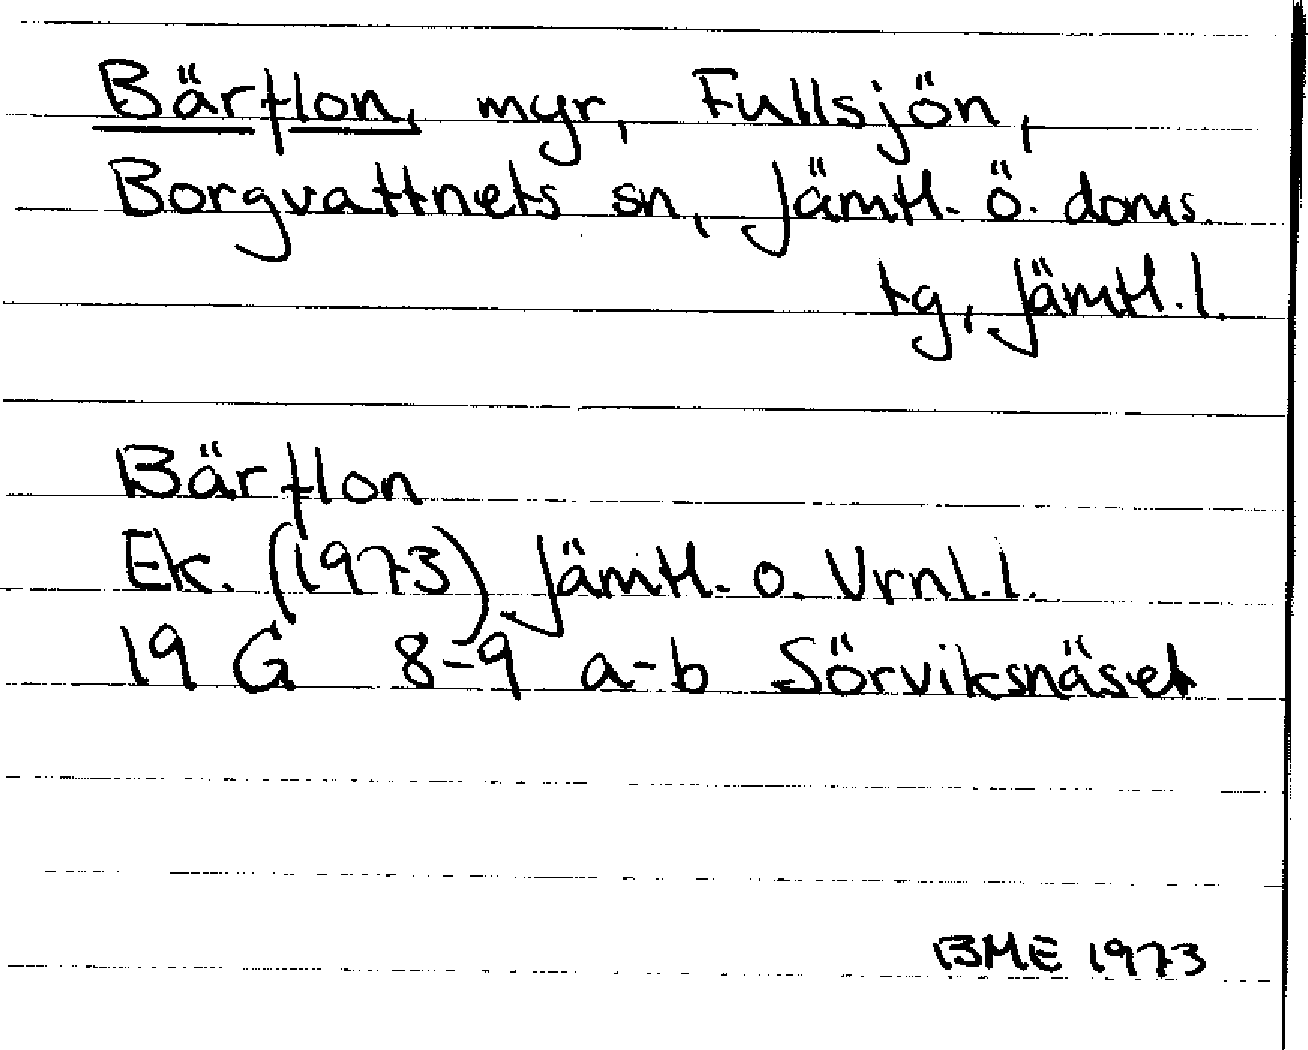 Bärflon, myr, Fullsjön,
Borgvattnets sn, Jämtl. ö. doms.
tg, Jämtl. l.
Bärflon
Ek. (1973) Jämtl. o. Vrnl. l.
19 G 8-9 a-b Sörviksnäset
BME 1973